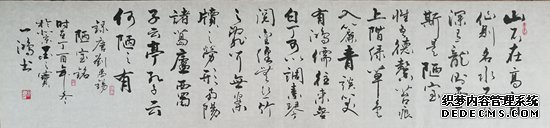 山不在高有
仙则名水不在
深有龙则灵
斯是陋室惟吾
德馨苔痕
上阶绿草色
入帘青谈笑
有鸿儒往来无
白丁可以调素琴
阅金经无丝竹
之乱耳无案
牍之劳形南阳
诸葛庐西蜀
子云亭孔子云
何陋之有
录唐刘禹锡
陋室铭
时在丁酉年冬
一鸿书
织梦内容管理系统
DEDECMS.COM